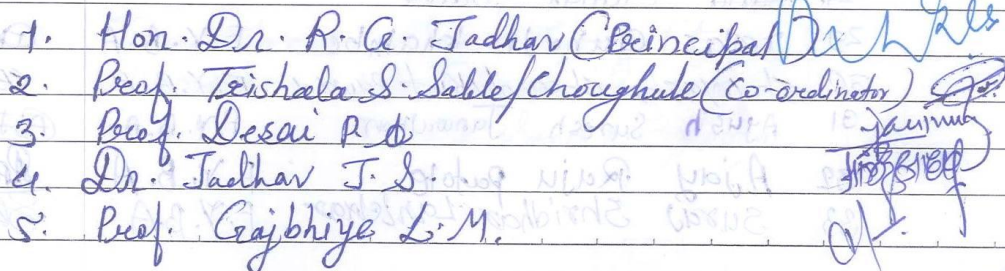 1. Hon. Dr. R. G. Jadhav (Principal)
2. Prof. Trishala S. Sable/Choughule (Co-ordinator)
3 Prof. Desai P.
4. Dr. Jadhav J. S
5. Prof. Gajbhiye L. M.